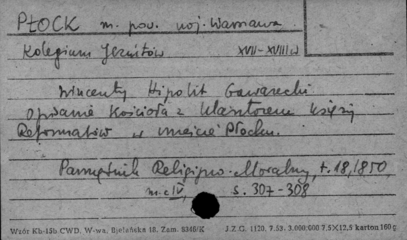 PŁOCK m. pow. woj. Warszawa
Kolegium Jezuitów XVII-XVIII w
Wincenty Hipolit Gawarecki
Opisanie Kościoła z Klasztorem Księży
Reformatów w mieście Płocku.
Pamiętnik Religijno-Moralny, t. 18, 1850,
s. 307-308
Wzór Kb-15b CWD. W-wa, Bielańska 18. Zam. 6346/K J.Z.G. 1120, 7.53. 3.000.000 7.5X12,5 karton 160 g.